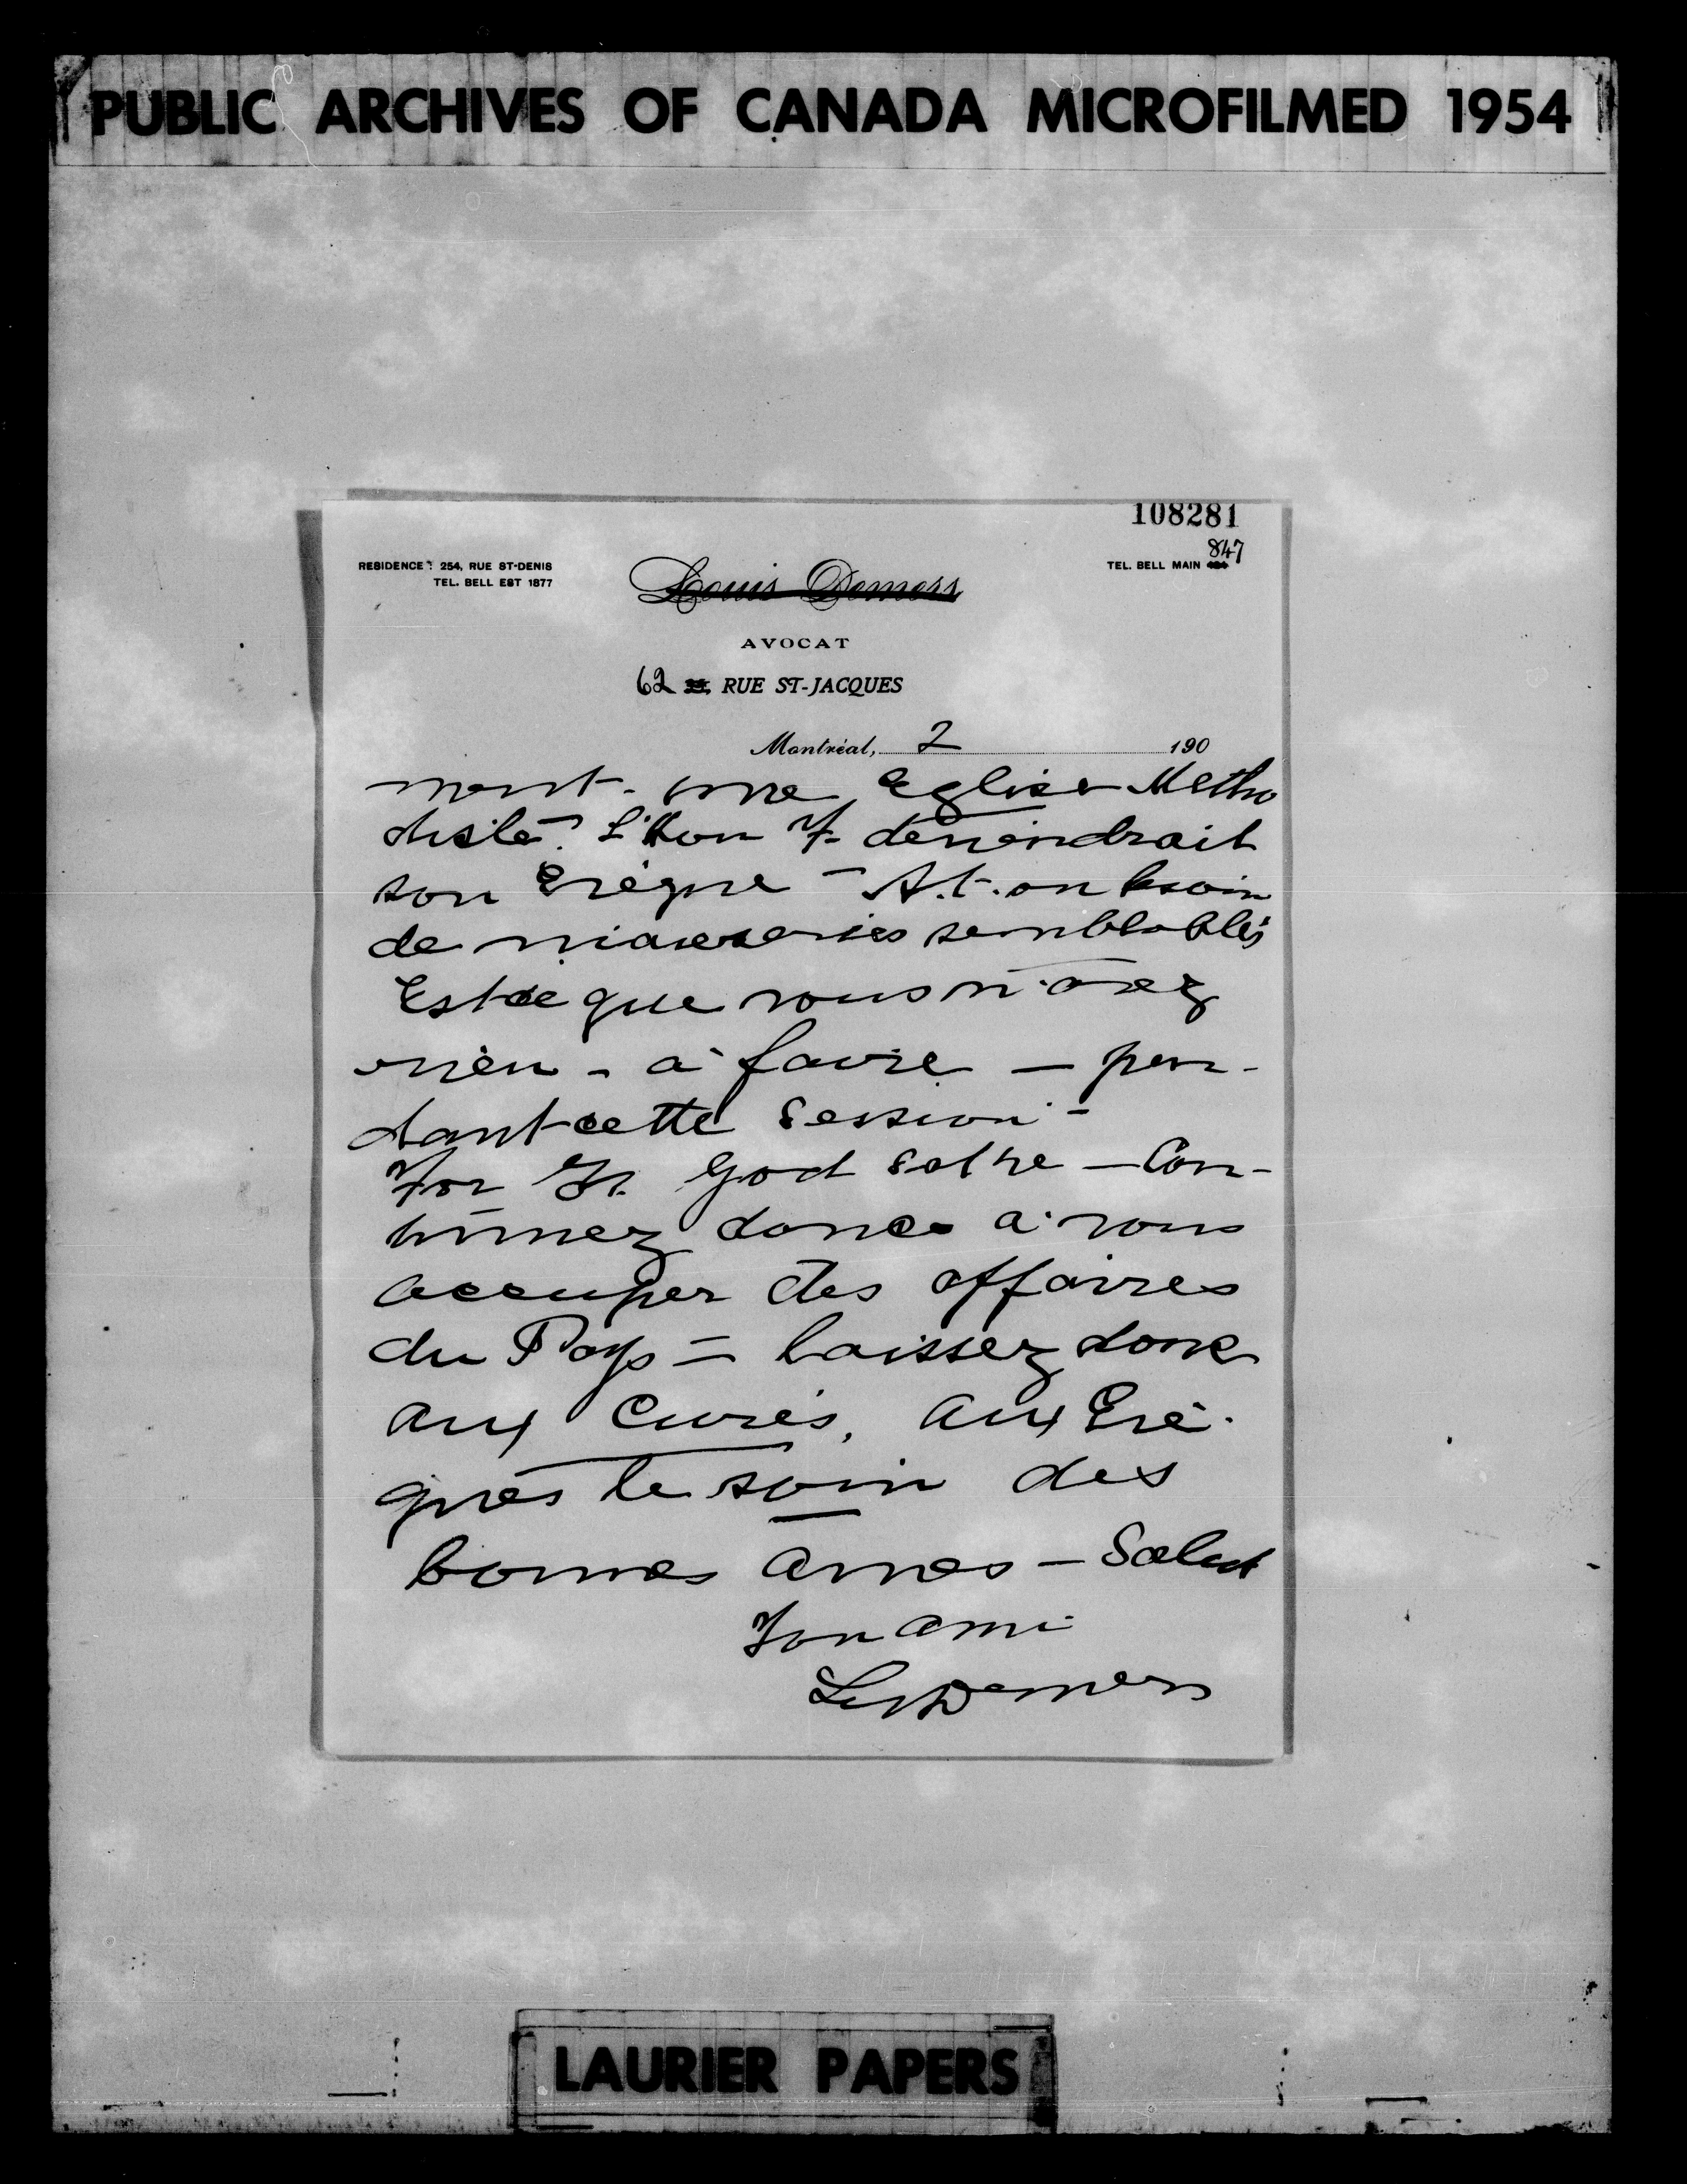 PUBLIC ARCHIVES OF CANADA MICROFILMED 1954
108281
847
RESIDENCE: 254, RUE ST-DENIS
TEL. BELL EST 1877
TEL. BELL MAIN
Louis Demers
AVOCAT
62 RUE ST-JACQUES
Montréal, 2 190
ment - une Eglise Metho
diste? L'Hon F. deviendrait
son Evèque - A.t.on besoin
de niaiseries semblables
Est ce que vous n'avez
rien - à faire - pen-
dant cette Session -
For God sake - Con-
tinuez donc à vous
occuper des affaires
du Pays - Laissez donc
aux Curés, aux Evê-
ques le soin des
bonnes ames - Salut
Ton ami
Demers
LAURIER PAPERS